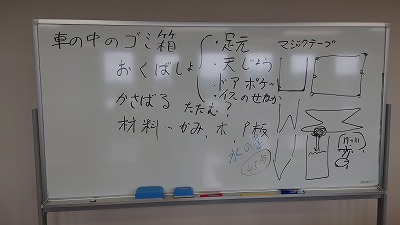 車の中のゴミ箱
おくばしょ
・足元
・天じょう
・ドアポケット
・イスのせなか
かさばる たたむ?
材料… かみ、木、P板
マジックテープ